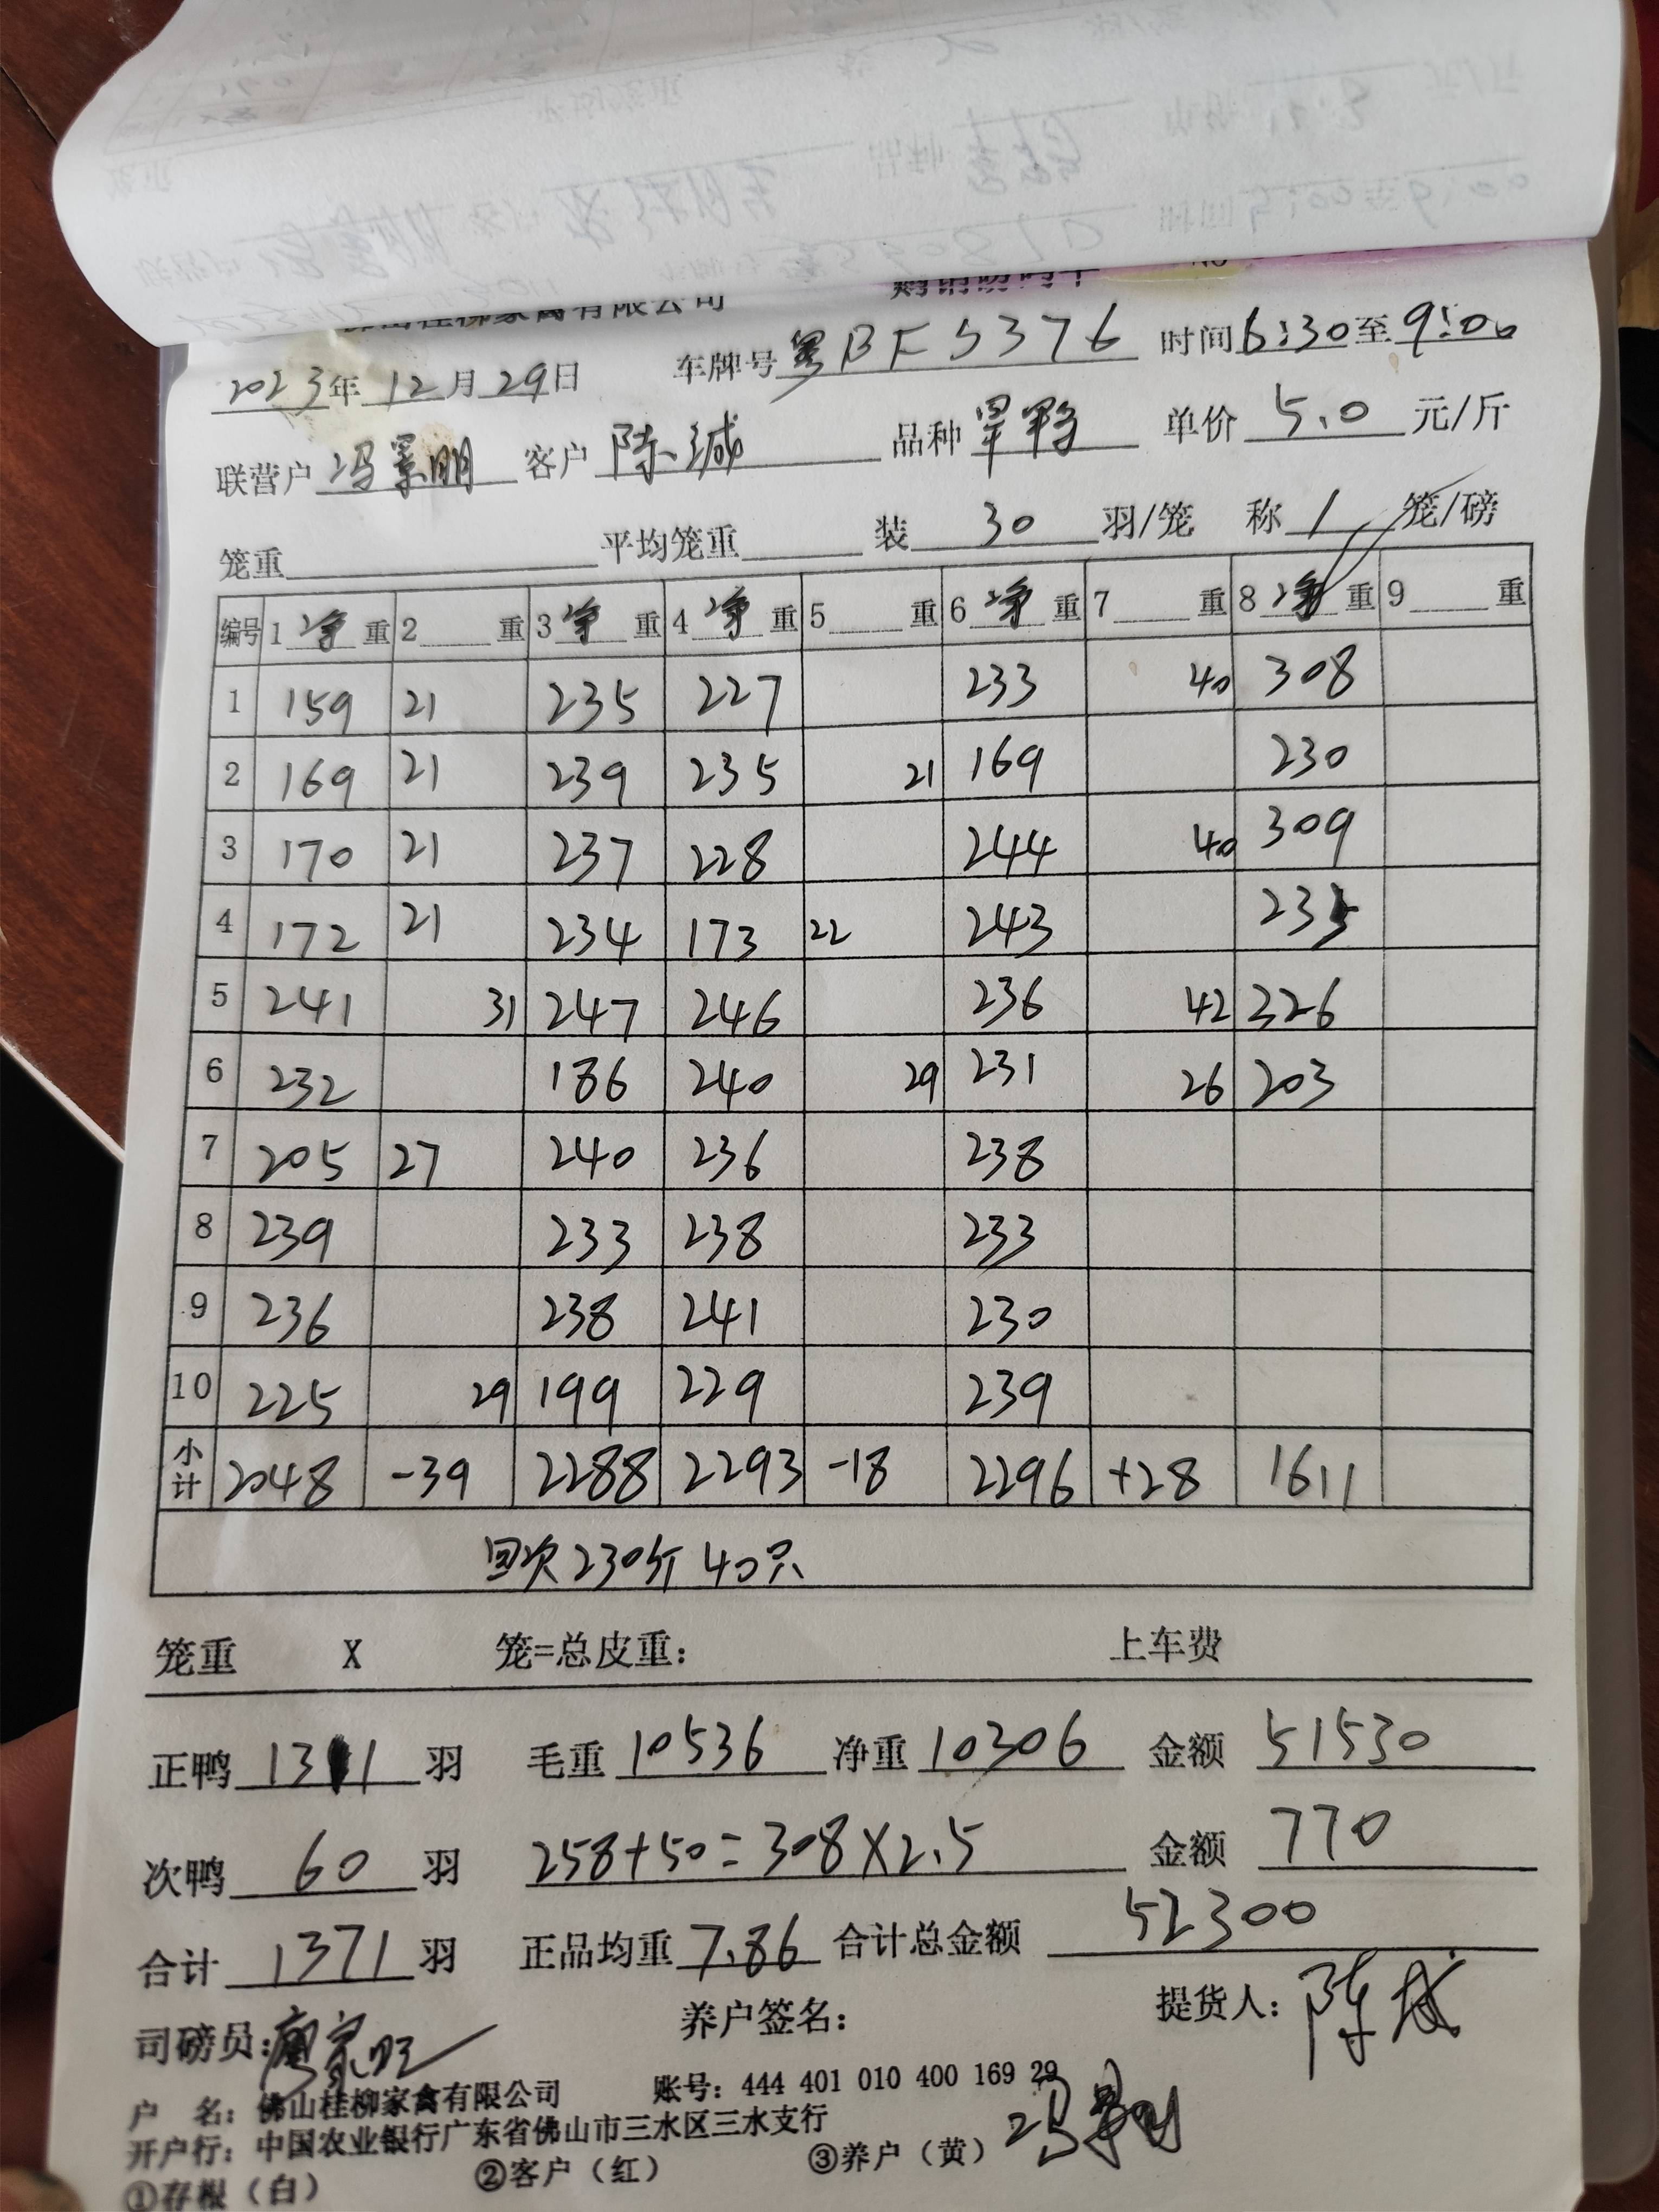 佛山桂柳家禽有限公司 购销磅码单
2023年12月29日 车牌号粤BF5376 时间6:30至9:00
联营户冯景明 客户陈诚 品种旱鸭 单价5.0元/斤
笼重 平均笼重 装30羽/笼 称1笼/磅
编号 1净重 2重 3净重 4净重 5重 6净重 7重 8净重 9重
1 159 21 235 227 233 40 308
2 169 21 239 235 21 169 230
3 170 21 237 228 244 40 309
4 172 21 234 173 22 243 235
5 241 31 247 246 236 42 326
6 232 186 240 29 231 26 203
7 205 27 240 236 238
8 239 233 238 233
9 236 238 241 230
10 225 29 199 229 239
小计 2048 -39 2288 2293 -18 2296 +28 1611
回次230斤 40只
笼重 X 笼=总皮重: 上车费
正鸭1311羽 毛重10536 净重10306 金额51530
次鸭60羽 258+50=308X2.5 金额770
合计1371羽 正品均重7.86 合计总金额52300
司磅员:廖家旺 养户签名: 提货人:陈诚
户 名:佛山桂柳家禽有限公司 账号:444 401 010 400 169 29
冯景明
开户行:中国农业银行广东省佛山市三水区三水支行
①存根(白) ②客户(红) ③养户(黄)